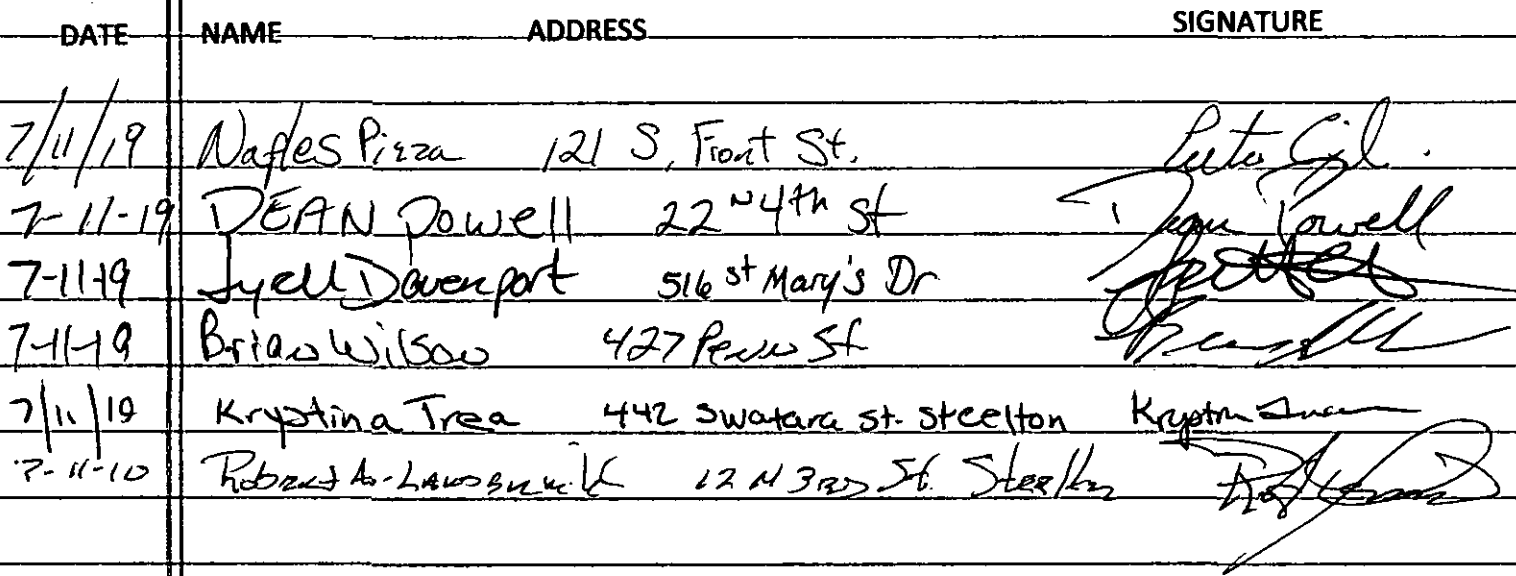 DATE NAME ADDRESS SIGNATURE
7/11/19 Naples Pizza 121 S. Front St.
7-11-19 DEAN Powell 22 N 4th St Dean Powell
7-11-19 Lyell Davenport 516 St Mary's Dr
7-11-19 Brian Wilson 427 Penn St
7/11/19 Krystina Trea 442 Swatara St. Steelton
7-11-10 Robert A. 12 N 3RD St. Steelton